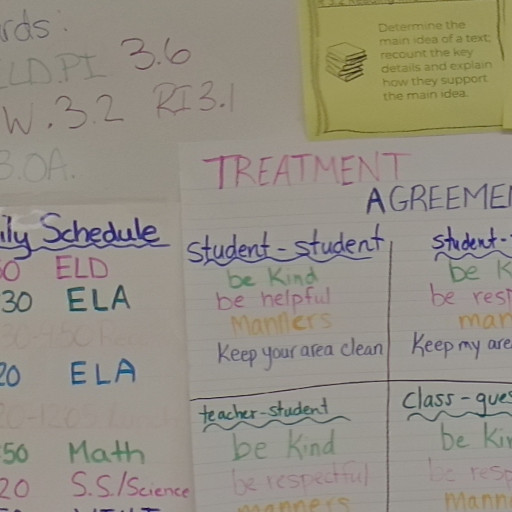 rds:
LD.PI 3.6
W.3.2 RI 3.1
3.OA.
Determine the
main idea of a text;
recount the key
details and explain
how they support
the main idea.
TREATMENT
AGREEME
ily Schedule
0 ELD
30 ELA
20 ELA
50 Math
20 S.S./Science
Student-student
be Kind
be helpful
Manners
Keep your area clean
student-
be K
be resp
man
Keep my are
teacher-student
be Kind
be respectful
manners
Class-gues
be Kin
be resp
mann